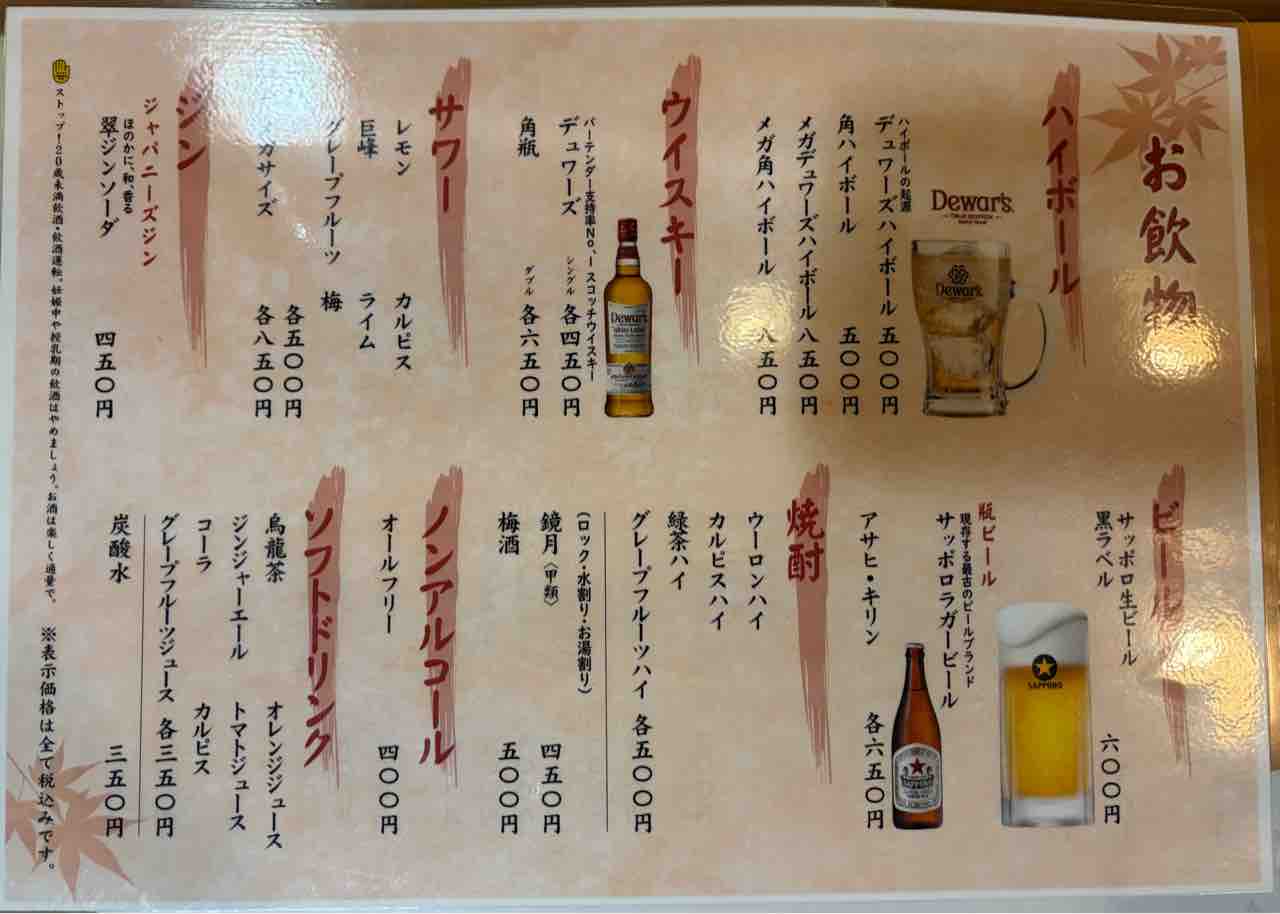 お飲物
ハイボール
Dewar's
ハイボールの起源
デュワーズハイボール 五〇〇円
角ハイボール 五〇〇円
メガデュワーズハイボール 八五〇円
メガ角ハイボール 八五〇円
ウイスキー
Dewar's
バーテンダー支持率No.1スコッチウイスキー
デュワーズ シングル 各四五〇円
角瓶 ダブル 各六五〇円
サワー
レモン カルピス
巨峰 ライム
グレープフルーツ 梅
各五〇〇円
メガサイズ 各八五〇円
ジン
ジャパニーズジン
ほのかに、和、香る
翠ジンソーダ 四五〇円
ビール
サッポロ生ビール
黒ラベル 六〇〇円
SAPPORO
瓶ビール
現存する最古のビールブランド
サッポロラガービール
アサヒ・キリン 各六五〇円
焼酎
ウーロンハイ
カルピスハイ
緑茶ハイ
グレープフルーツハイ 各五〇〇円
(ロック・水割り・お湯割り)
鏡月〈甲類〉 四五〇円
梅酒 五〇〇円
ノンアルコール
オールフリー 四〇〇円
ソフトドリンク
烏龍茶 オレンジジュース
ジンジャーエール トマトジュース
コーラ カルピス
グレープフルーツジュース 各三五〇円
炭酸水 三五〇円
ストップ!20歳未満飲酒・飲酒運転。妊娠中や授乳期の飲酒はやめましょう。お酒は楽しく適量で。 ※表示価格は全て税込みです。